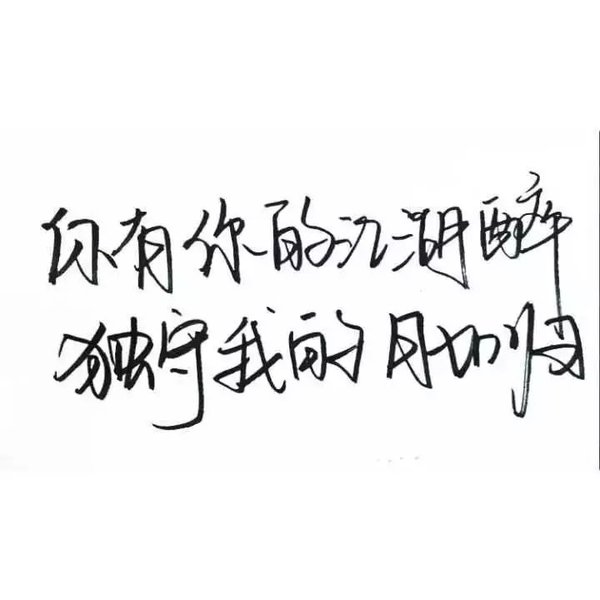 你有你的江湖醉
独守我的月归